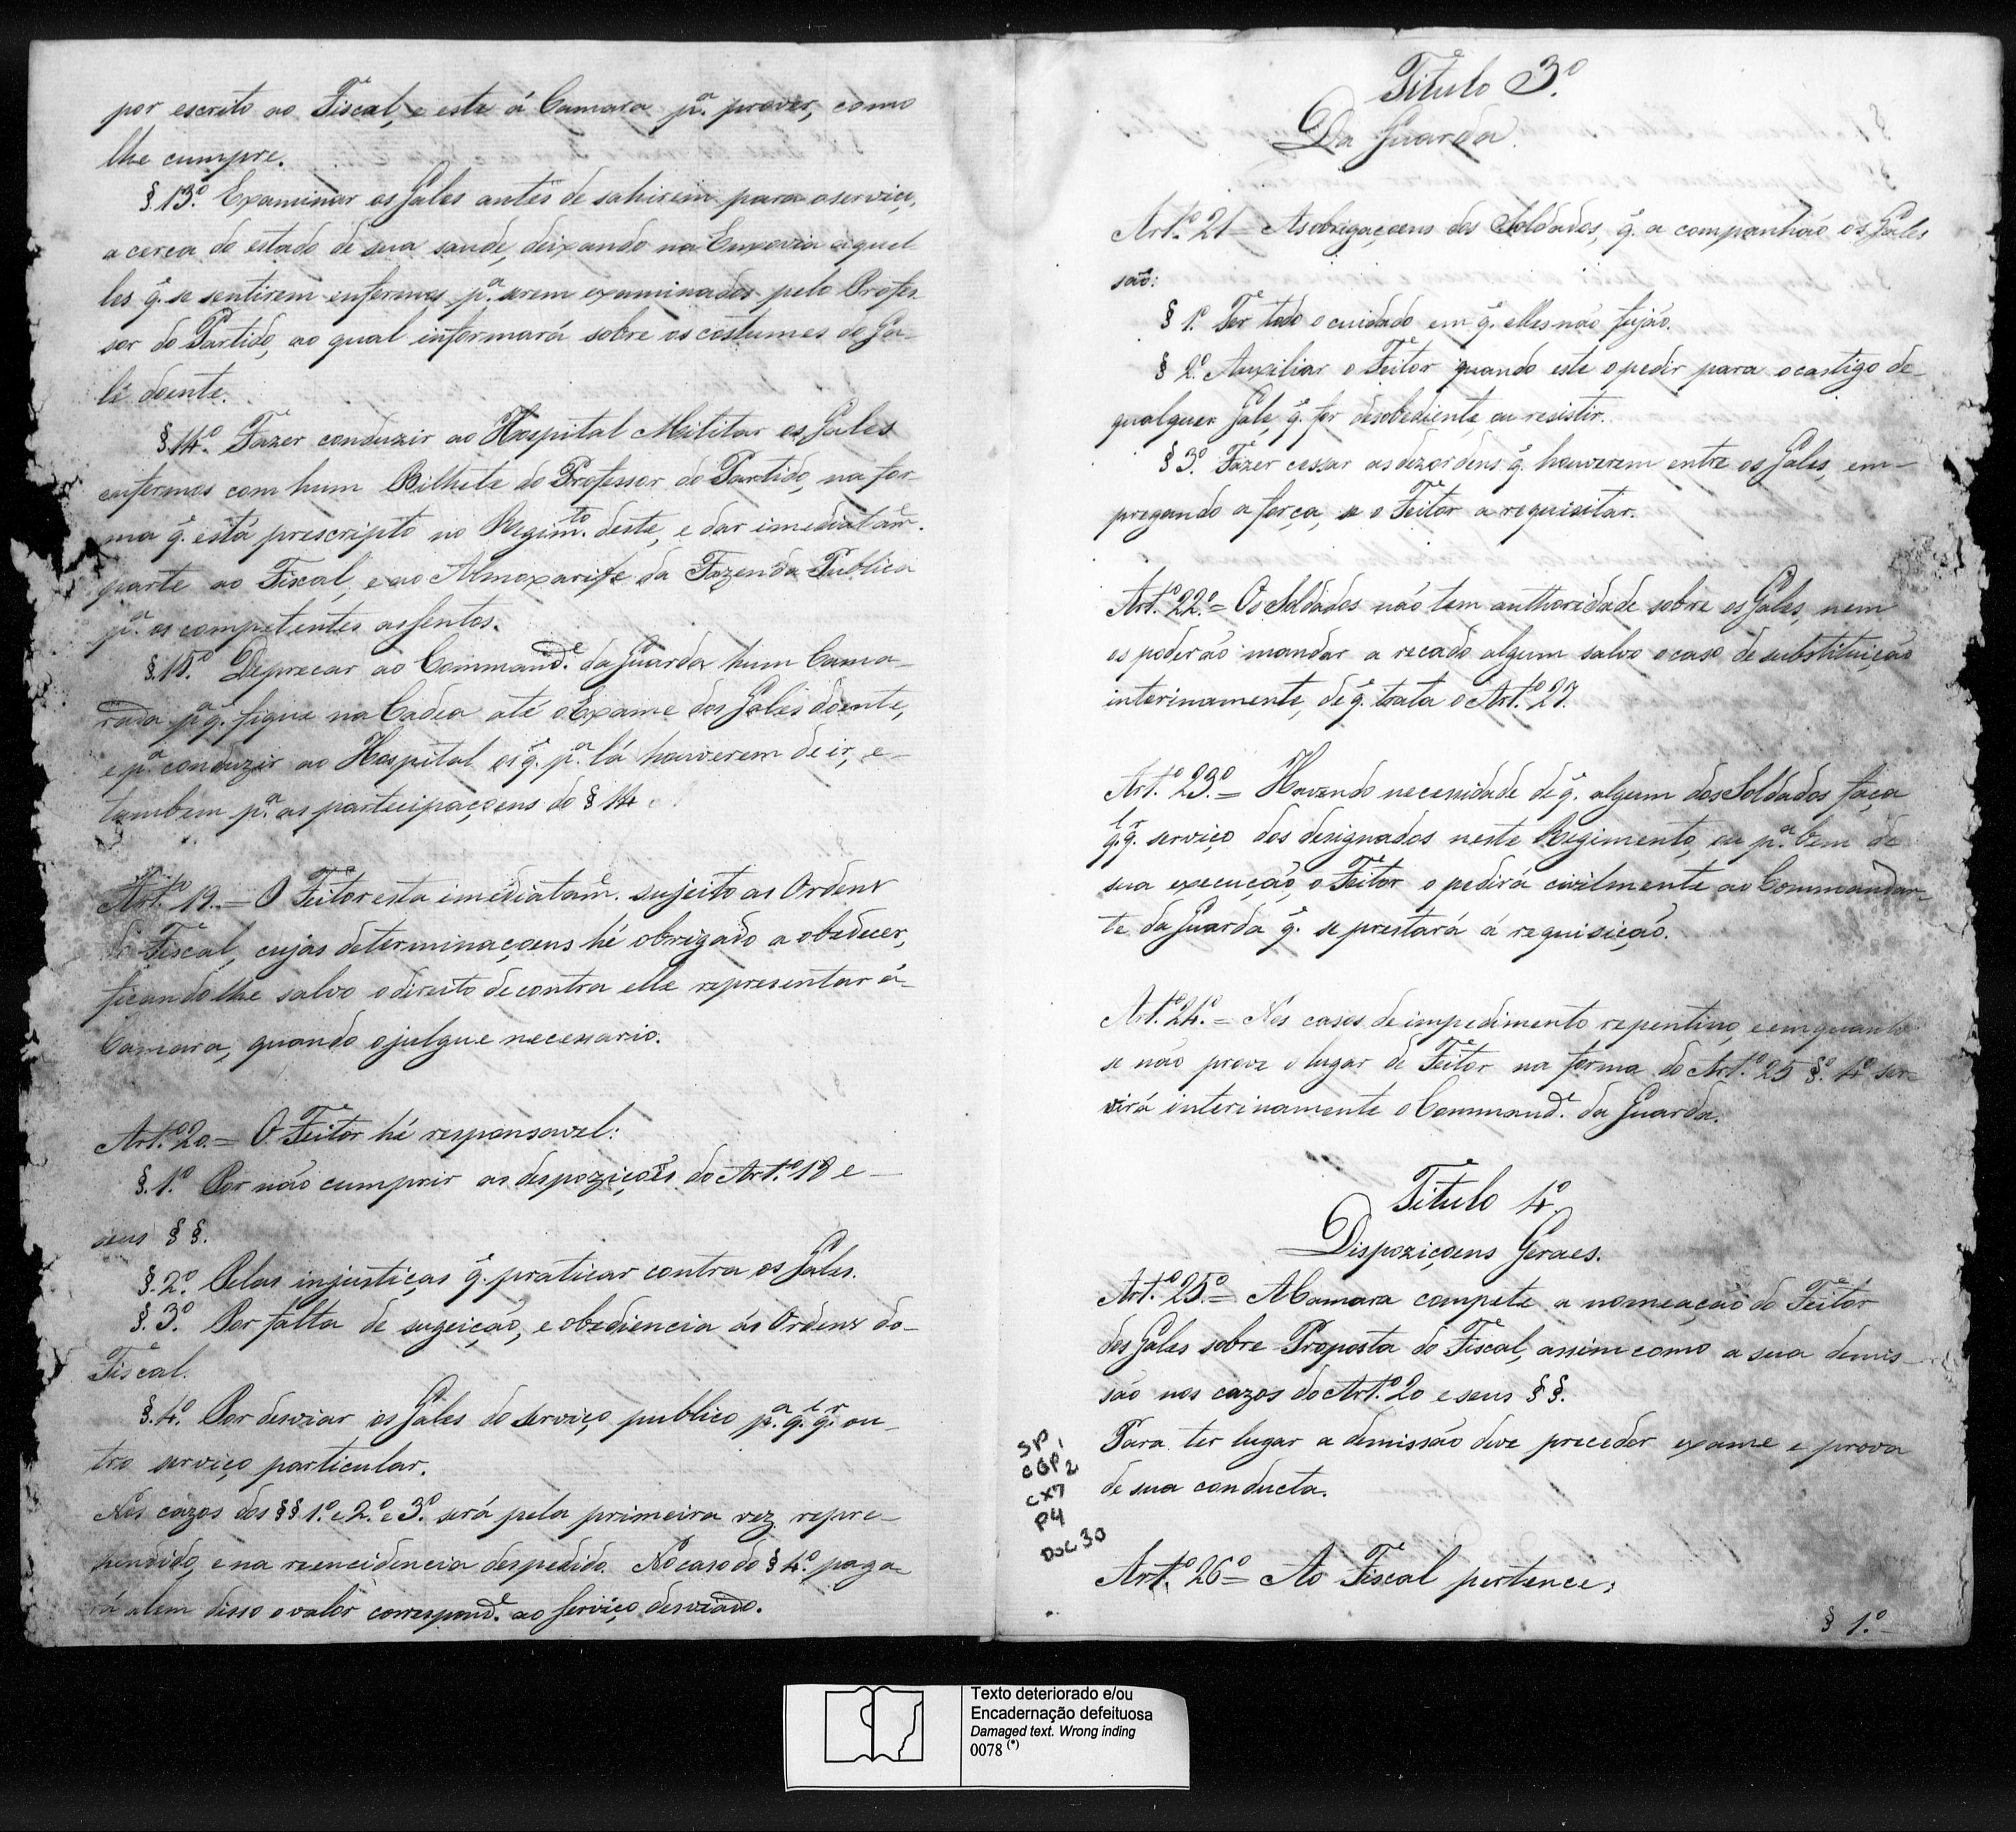 por escrito ao Fiscal, e este á Camara pª. prover, como
lhe cumpre.
§. 13º. Examinar os Gales antes de sahirem para o serviço,
a cerca do estado de sua saude, deixando na Enxovia aquel-
les q̃. se sentirem enfermos pª. serem examinados pelo Profes-
sor do Partido, ao qual informará sobre os costumes do Ga-
lé doente.
§. 14º. Fazer conduzir ao Hospital Militar os Gales
enfermos com hum Bilhete do Professor do Partido, na for-
ma q̃. está prescripto no Regimto. deste, e dar imediatame.
parte ao Fiscal, e ao Almoxarife da Fazenda Publica
pª. os competentes assentos.
§. 15º. Deprecar ao Commande. da Guarda hum Cama-
rada pª q̃. fique na Cadea até o Exame dos Gales doente,
e pª. conduzir ao Hospital os q̃. pª. lá houverem de ir, e-
tambem pª. as participaçoens do § 14
Artº. 19. = O Feitor esta imediatame. sujeito as Ordens
do Fiscal, cujas determinaçoens hé obrigado a obedecer,
ficando lhe salvo o direito de contra elle representar á-
Camara, quando o julgue necessario.
Artº. 20. = O Feitor hé responsavel:
§. 1º. Por não cumprir as despoziçoẽs do Artº. 18 e-
seus §§.
§. 2º. Pelas injustiças q̃. praticar contra os Gales.
§. 3º. Por falta de sugeição, e obediencia ás Ordens do-
Fiscal.
§. 4º. Por desviar os Gales do serviço publico pª. q.l q.r ou-
tro serviço particular.
Nos cazos dos §§ 1º. e 2º. e 3º. será pela primeira vez repre-
hendido, e na reencidencia despedido. No caso do § 4º. paga-
rá alem disso o valor corresponde. ao serviço desviado.
Titulo 3º.
Da Guarda.
Artº. 21 = As obrigaçoens dos Soldados, q̃. a companhão os Gales
são:
§ 1º. Ter todo o cuidado em q̃. elles não fujão.
§ 2º. Auxiliar o Feitor quando este o pedir para o castigo de-
qualquer Galé, q̃. for desobediente, ou resistir.
§ 3º. Fazer cessar as dezordens q̃. houverem entre os Gales, em-
pregando a força, se o Feitor a requisitar.
Artº. 22º = Os Soldados não tem authoridade sobre os Gales, nem
os poderão mandar a recado algum salvo o caso de substituição
interinamente, de q̃. trata o Artº. 27.
Artº. 23º. = Havendo necessidade de q̃. algum dos Soldados faça
q.l q.r serviço dos designados neste Regimento, ou pª. bem de
sua execução, o Feitor o pedirá civilmente ao Commandan-
te da Guarda q̃. se prestará á requisição.
Artº. 24º. = Nos casos de impedimento repentino, e em quanto
se não prove o lugar de Feitor na forma do Artº. 25 §º. 4º ser-
virá interinamente o Commande. da Guarda.
Titulo 4º.
Dispoziçoens Geraes.
Artº. 25º. = A Camara compete a nomeação do Feitor
dos Gales sobre Proposta do Fiscal, assim como a sua demis-
são nos cazos do Artº. 20 e seus §§.
Para ter lugar a demissão deve preceder exame e prova
de sua conducta.
Artº. 26º = Ao Fiscal pertence:
§ 1º.-
SP
CGP1
2
CX7
P4
DOC 30
Texto deteriorado e/ou
Encadernação defeituosa
Damaged text. Wrong inding
0078 (*)